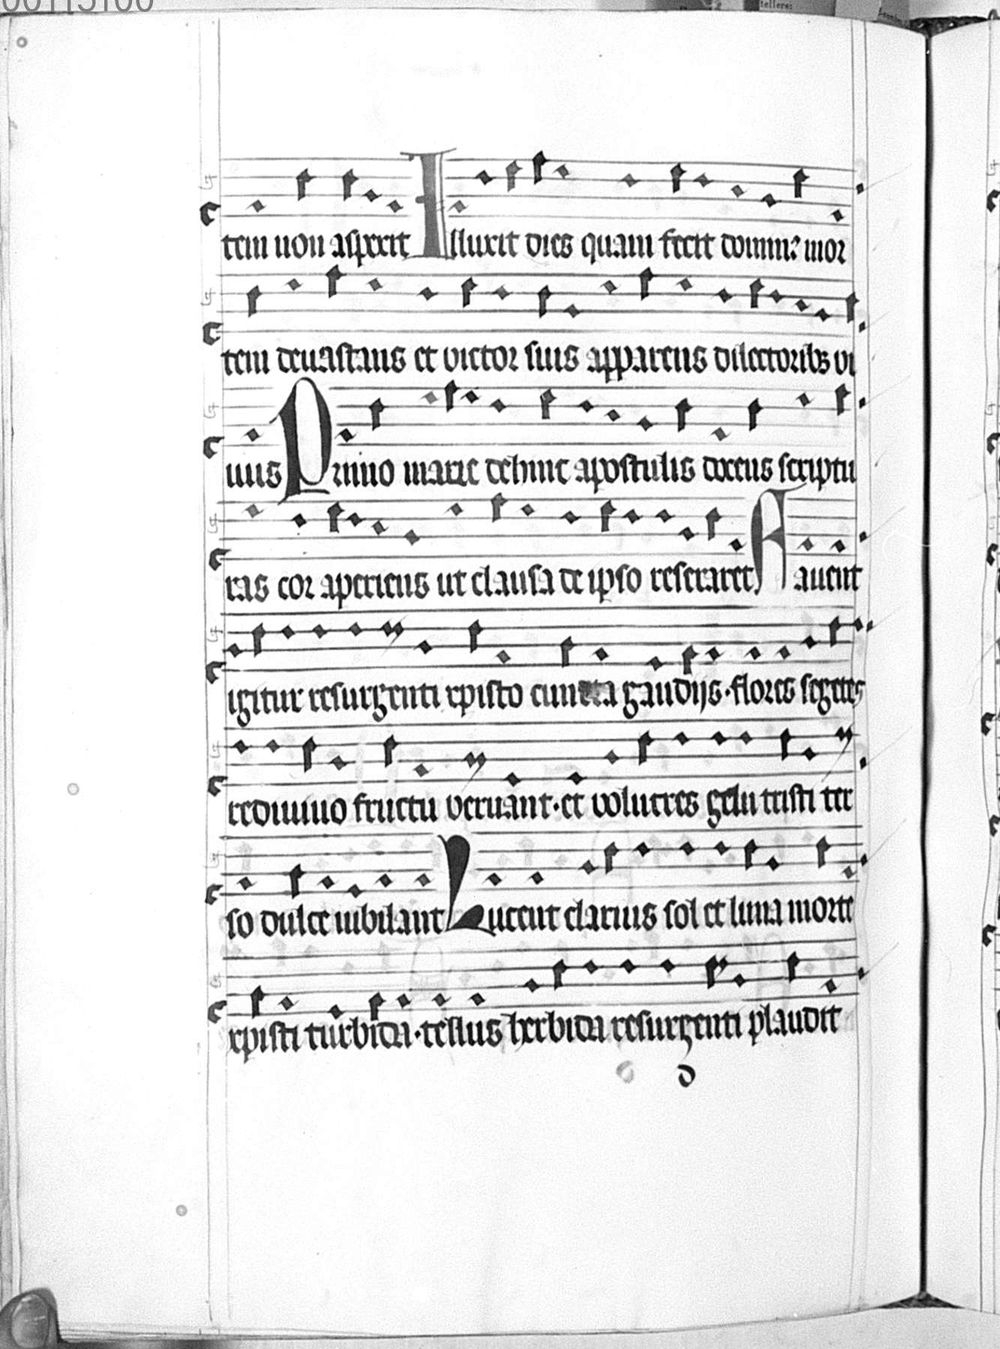 00115100
tem non asperit Illuxit dies quam fecit domin9 mor
tem deuastans et victor suis apparens dilectorib3 vi
uus Primo marie dehinc apostolis docens scriptu
ras cor aperiens ut clausa de ipso reseraret Fauent
igitur resurgenti xpisto cuncta gaudijs·flores segetes
rediuiuo fructu vernant·et volucres gelu tristi ter
so dulce iubilant Lucent clarius sol et luna morte
xpisti turbida·tellus herbida resurgenti plaudit